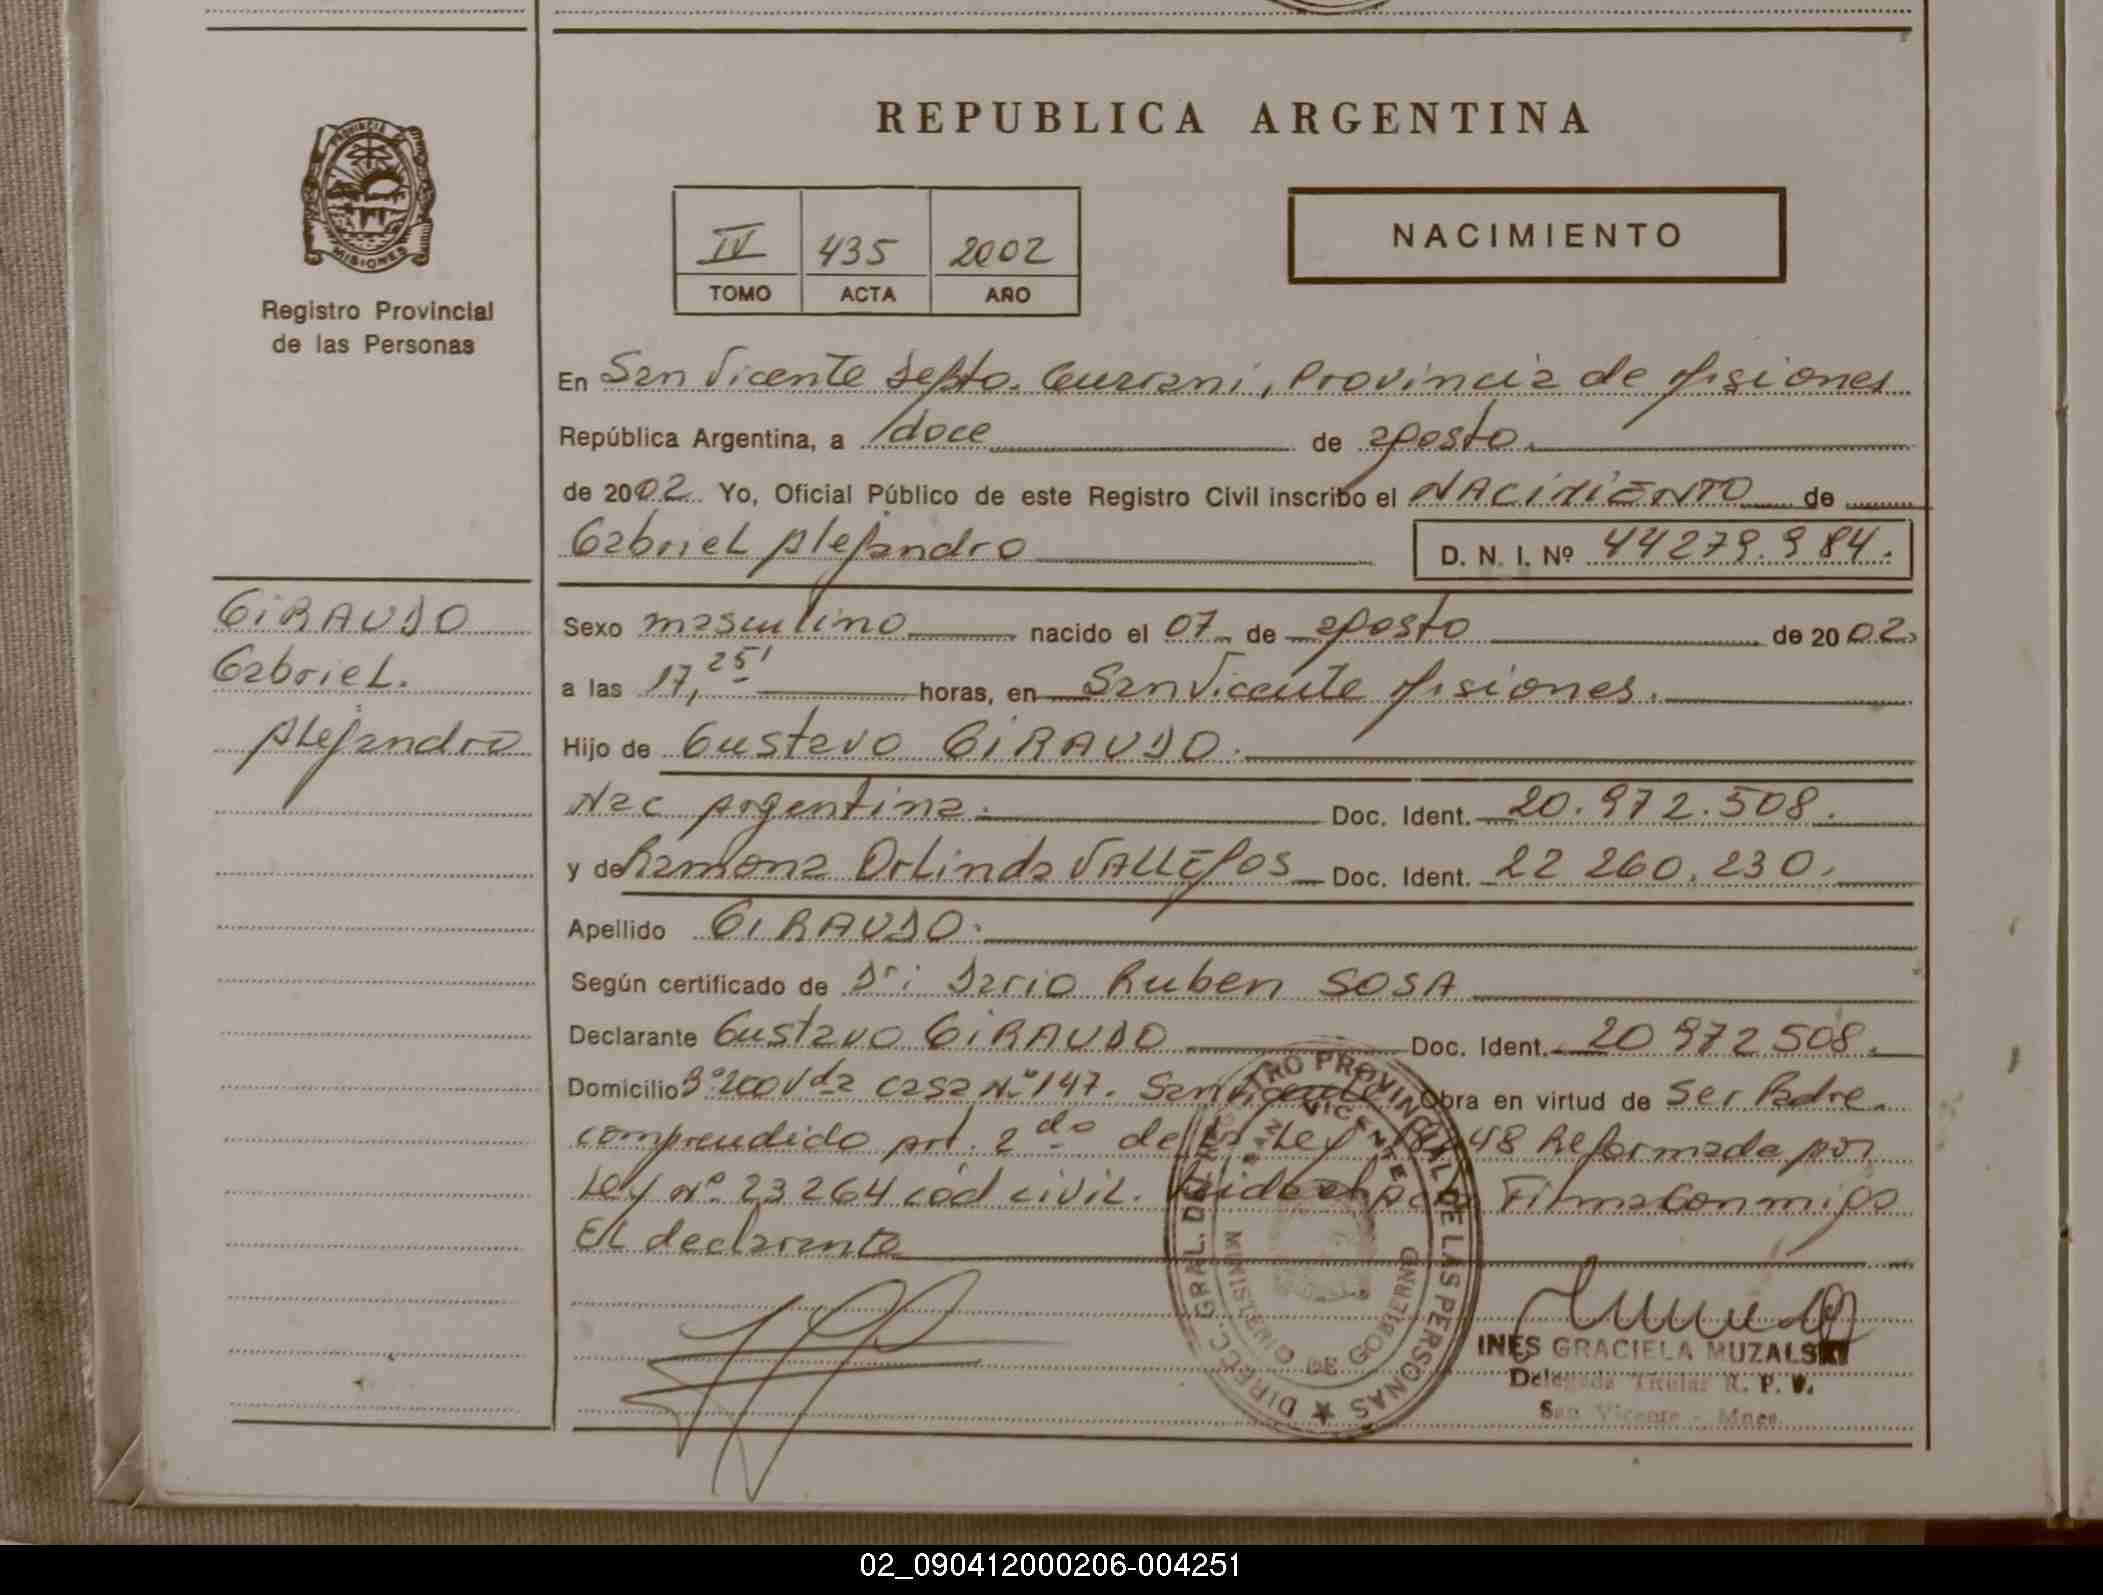 REPUBLICA ARGENTINA
PROVINCIA
MISIONES
Registro Provincial
de las Personas
IV 435 2002
TOMO ACTA AÑO
NACIMIENTO
En San Vicente Depto. Guaraní, Provincia de Misiones
República Argentina, a doce de agosto.
de 2002 Yo, Oficial Público de este Registro Civil inscribo el NACIMIENTO de
Gabriel Alejandro D. N. I. Nº 44279.984.
GIRAUDO
Gabriel.
Alejandro
Sexo masculino nacido el 07 de agosto de 2002
a las 17,25' horas, en San Vicente Misiones.
Hijo de Gustavo GIRAUDO.
Nac Argentina. Doc. Ident. 20.972.508.
y de Ramona Orlinda VALLEJOS Doc. Ident. 22 260.230.
Apellido GIRAUDO.
Según certificado de Dr: Dario Ruben SOSA
Declarante Gustavo GIRAUDO Doc. Ident. 20 972 508.
Domicilio Bº 200 Vdª casa Nº 147. San Vicente Obra en virtud de Ser Padre.
comprendido Art. 2do de la Ley Reformada por
Ley Nº 23264 cód civil. Leida el Acta Firma Conmigo
El declarante
DIRECC. GRAL. DEL REGISTRO PROVINCIAL DE LAS PERSONAS
SAN VICENTE
MINISTERIO DE GOBIERNO
INES GRACIELA MUZALSKI
Delegada Titular R. P. P.
San Vicente - Mnes.
02_090412000206-004251